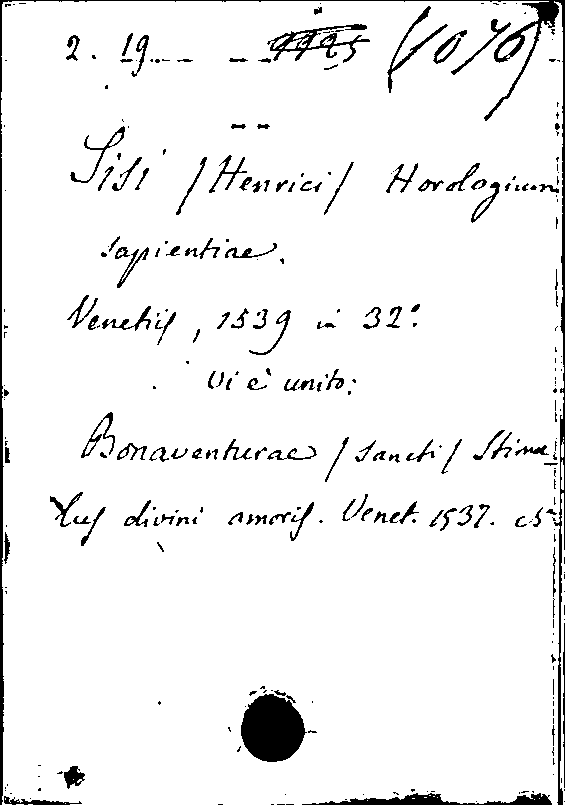 2. 19 1925 (1070)
Sisi /Henrici/ Horologium
sapientiae.
Venetiis, 1539 in 32°.
Vi è unito:
Bonaventurae /Sancti/ Stimu
lus divini amoris. Venet. 1537.